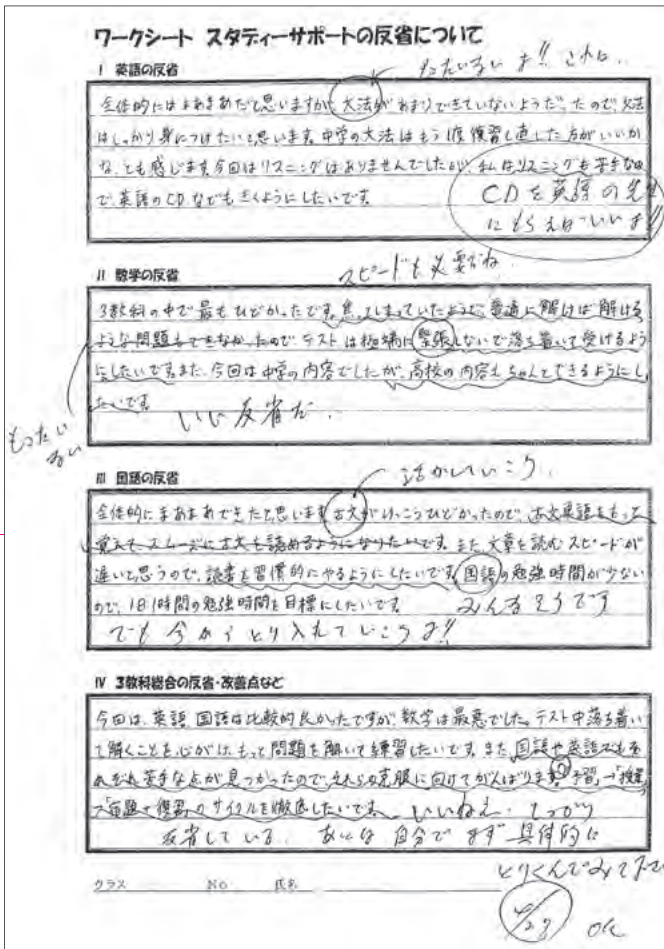 ワークシート スタディーサポートの反省について
I 英語の反省
もったいないよ!! これは..
全体的にはまあまあだと思いますが、文法があまりできていないようだったので、文法
はしっかり身につけたいと思います。中学の文法はもう1度復習し直した方がいいか
な、とも感じます。今回はリスニングはありませんでしたが、私はリスニングも苦手なの
で、英語のCDなどもきくようにしたいです。
CDを英語の先生
にもらえばいいよ!!
II 数学の反省
スピードも必要だね.
3教科の中で最もひどかったです。焦ってしまっていたようで、普通に解けば解ける
ような問題もできなかったので、テストは極端に緊張しないで落ち着いて受けるよう
にしたいです。また、今回は中学の内容でしたが、高校の内容もちゃんとできるようにし
たいです。
もったい
ない
いい反省だ.
III 国語の反省
活かしていこう.
全体的にまあまあできたと思います。古文がけっこうひどかったので、古文単語をもって
覚えて、スムーズに古文も読めるようになりたいです。また、文章を読むスピードが
遅いと思うので、読書を習慣的にやるようにしたいです。国語の勉強時間が少ない
ので、1日1時間の勉強時間を目標にしたいです。
みんなそうです
でも今からとり入れていこうよ!!
IV 3教科総合の反省・改善点など
今回は、英語、国語は比較的良かったですが、数学は最悪でした。テスト中落ち着い
て解くことを心がけ、もって問題を解いて練習したいです。また、国語や英語でもそ
れぞれ苦手な点が見つかったので、それらの克服に向けてがんばります。「予習」→「授業」
→「宿題→復習」のサイクルを徹底したいです。
いいねえ. しっかり
反省している. あとは自分でまず具体的に
とりくんでみて下さい
クラス No 氏名
4/23 OK